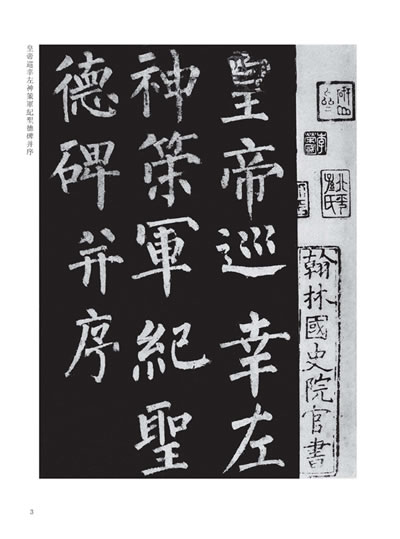 翰林國史院官書
北平孫氏
皇帝巡幸左
神策軍紀聖
德碑并序
皇帝巡幸左神策軍紀聖德碑并序
3